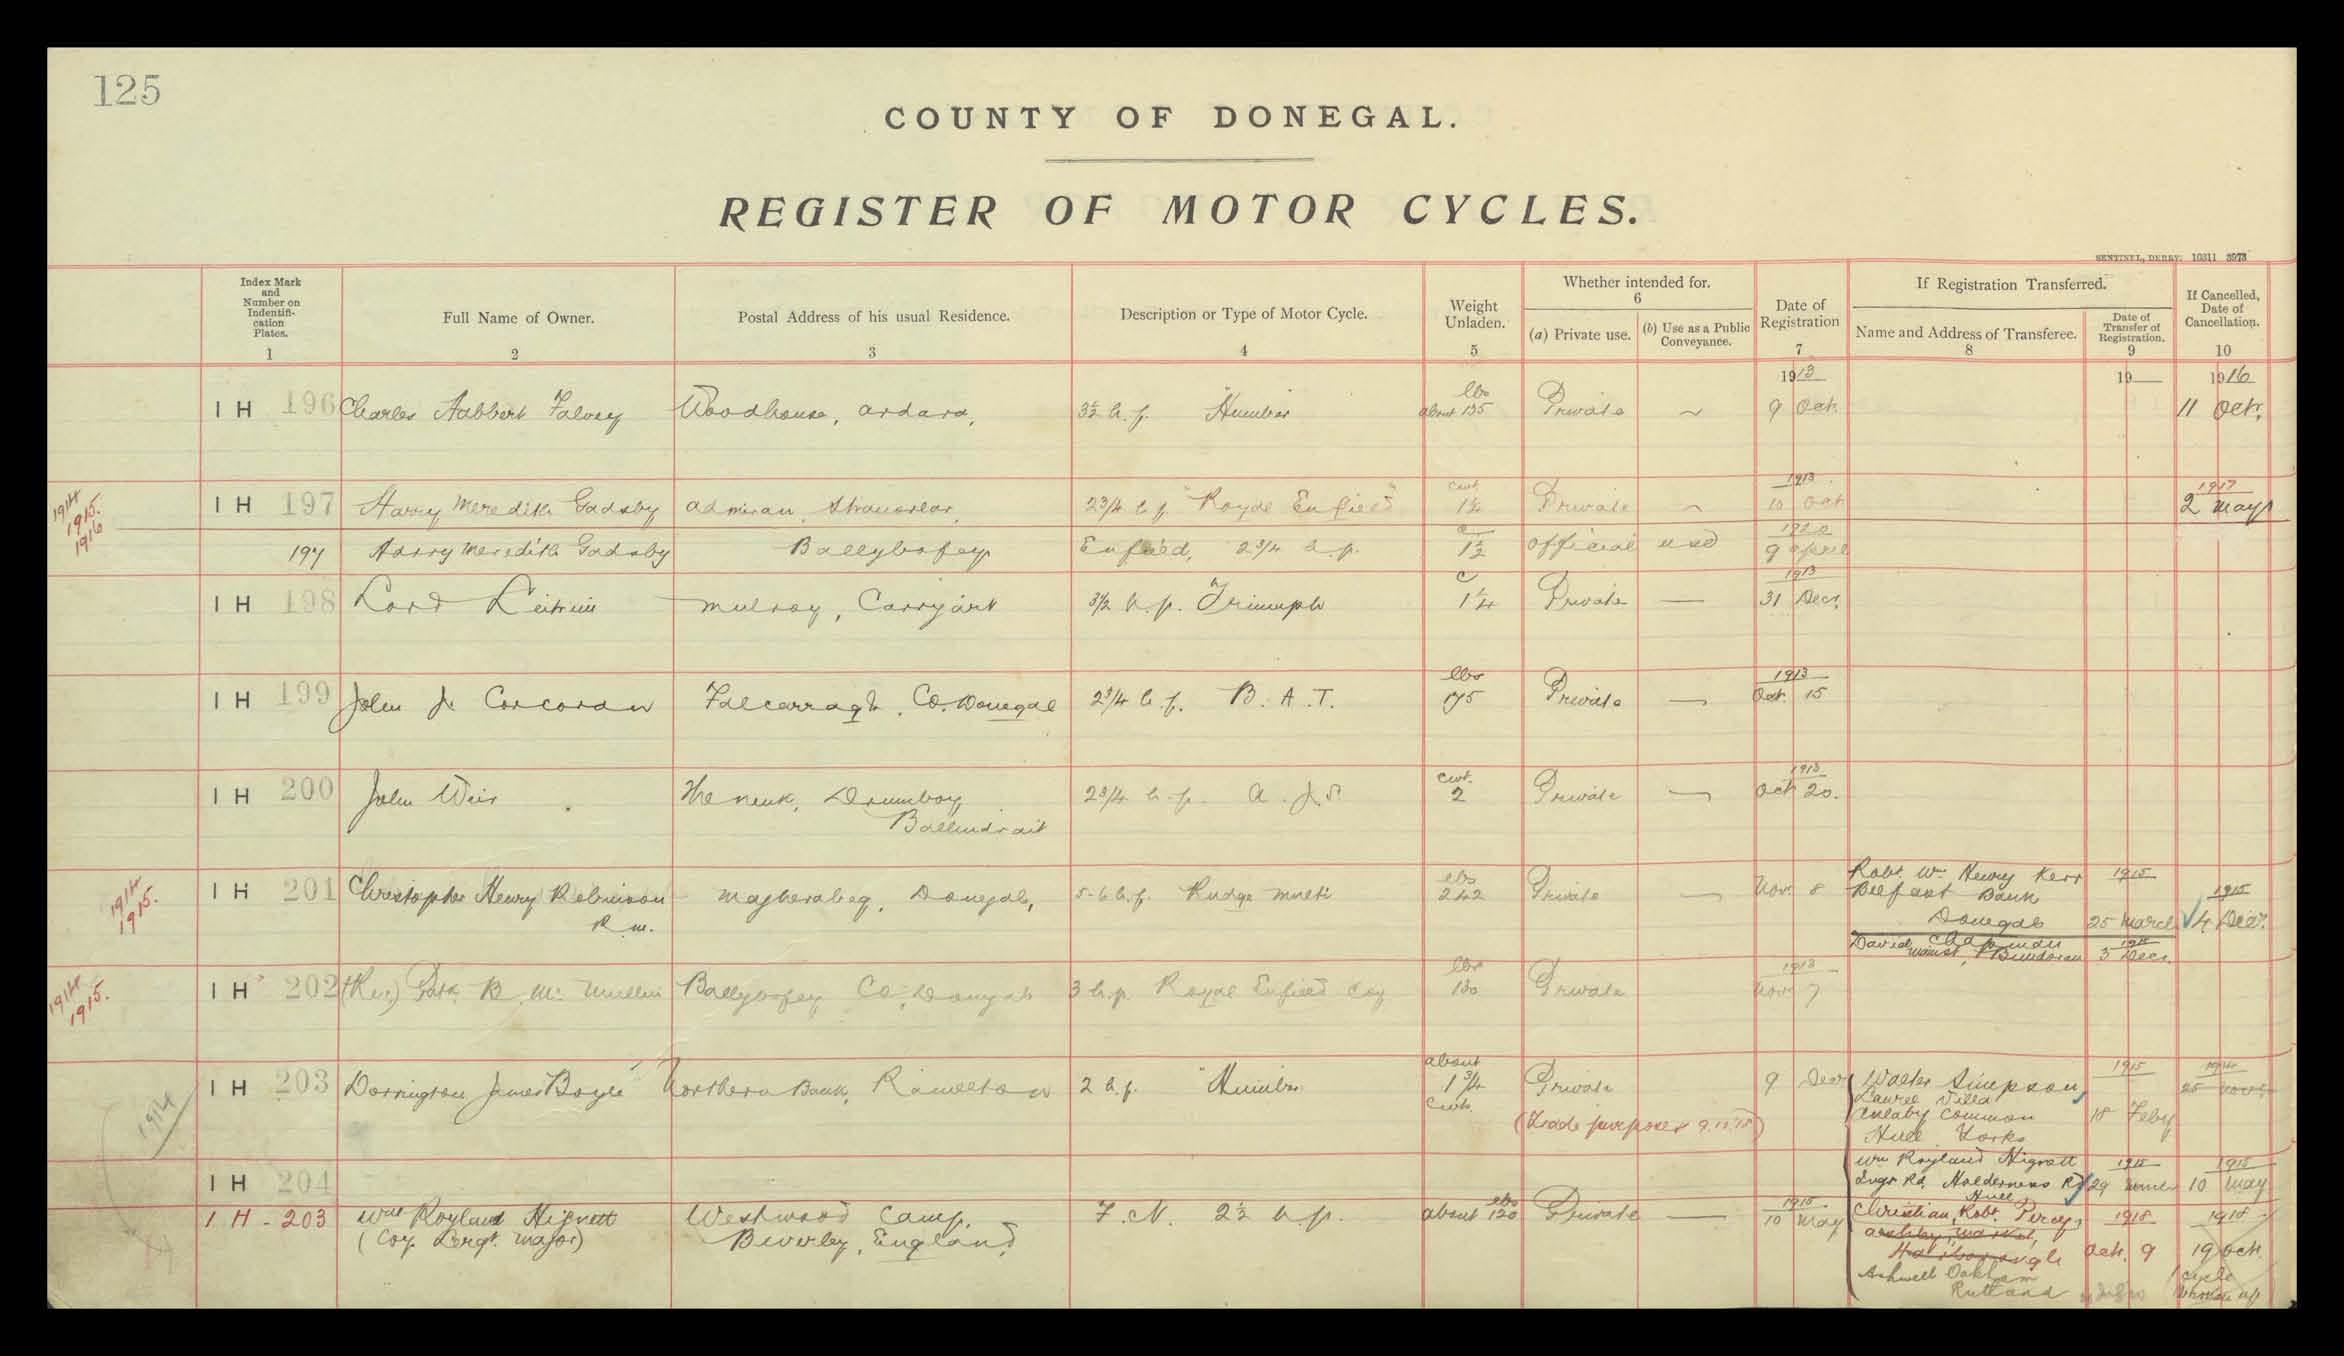 125
COUNTY OF DONEGAL.
REGISTER OF MOTOR CYCLES.
SENTINEL, DERRY. 10311 3973
Index Mark and Number on Indentifi-cation Plates. 1
Full Name of Owner. 2
Postal Address of his usual Residence. 3
Description or Type of Motor Cycle. 4
Weight Unladen. 5
Whether intended for. 6
(a) Private use.
(b) Use as a Public Conveyance.
Date of Registration 7
If Registration Transferred.
Name and Address of Transferee. 8
Date of Transfer of Registration. 9
If Cancelled, Date of Cancellation. 10
1913 19 1916
lbs
IH 196 Charles Falvey Woodhouse, Ardara, 3½ h.p. Humber about 135 Private 9 Oct. 11 Octr.
1914 1915. 1916
cwt. 1913 1917
IH 197 Harry Meredith Gadsby Admiran, Stranorlar, 2 3/4 h.p. "Royal Enfield" 1½ Private 10 Oct 2 May
c 1920
197 Harry Meredith Gadsby Ballybofey Enfield, 2 3/4 h.p. 1½ Official use 9 April
c 1913
IH 198 Lord Leitrim Mulroy, Carrigart 3½ h.p. Triumph 1¼ Private 31 Decr.
lbs 1913
IH 199 John J. Corcoran Falcarragh, Co. Donegal 2 3/4 h.p. B.A.T. 175 Private Oct. 15
cwt. 1913
IH 200 John Weir The Neuk, Drumboy 2 3/4 h.p. A.J.S. 2 Private Oct 20.
Ballindrait
1914 1915.
lbs Robt. Wm. Henry Kerr 1915
IH 201 Christopher Henry Robinson Magherabeg, Donegal, 5-6 h.p. Rudge Multi 242 Private Nov. 8 Belfast Bank 1915
R.M. Donegal 25 March 4 Decr.
David Chapman 1915
Bundoran 3 Decr.
1914 1915.
lbs 1913
IH 202 (Rev.) Patk. B. McMullin Ballybofey Co. Donegal 3 h.p. Royal Enfield Coy 130 Private Nov. 7
1914
about 1915 1914
IH 203 Dorrington James Boyle Northern Bank, Ramelton 2 h.p. Humber 1 3/4 Private 9 Decr Walter Simpson 25 Novr.
cwt. Laurel Villa
(Trade purposes 9.12.15) Anlaby Common 18 Feby
Hull Yorks
Wm Royland Hignett 1915 1915
IH 204 Holderness Rd 29 10 May
Hull
lbs 1915
IH-203 Wm Royland Hignett Westwood Camp, F.N. 2½ h.p. about 120 Private 10 May Christian, Robt. Percy, 1918 1918
(Coy. Sergt. Major) Beverley, England Market
Harborough Oct. 9 19 Oct.
Ashwell Oakham cycle
Rutland broken up